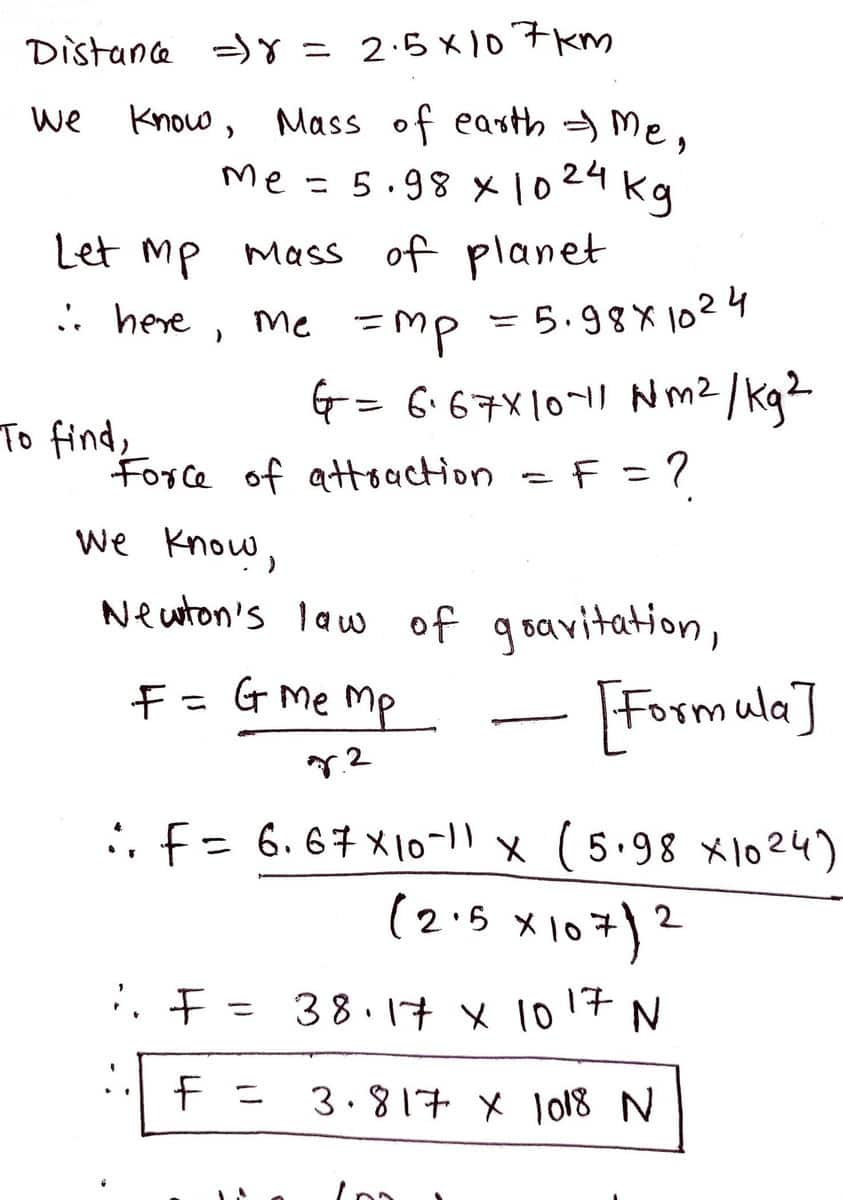 Distance ⇒ r = 2.5 × 10 7 km
We Know, Mass of earth ⇒ Me,
Me = 5.98 × 10 24 kg
Let Mp mass of planet
∴ here, Me = Mp = 5.98 × 10 24
G = 6.67 × 10 -11 Nm2/kg2
To find,
Force of attraction = F = ?
We Know,
Newton's law of gravitation,
F = G Me Mp — [Formula]
r 2
∴ F = 6.67 × 10 -11 × (5.98 × 10 24)
(2.5 × 10 7) 2
∴ F = 38.17 × 10 17 N
∴ F = 3.817 × 1018 N